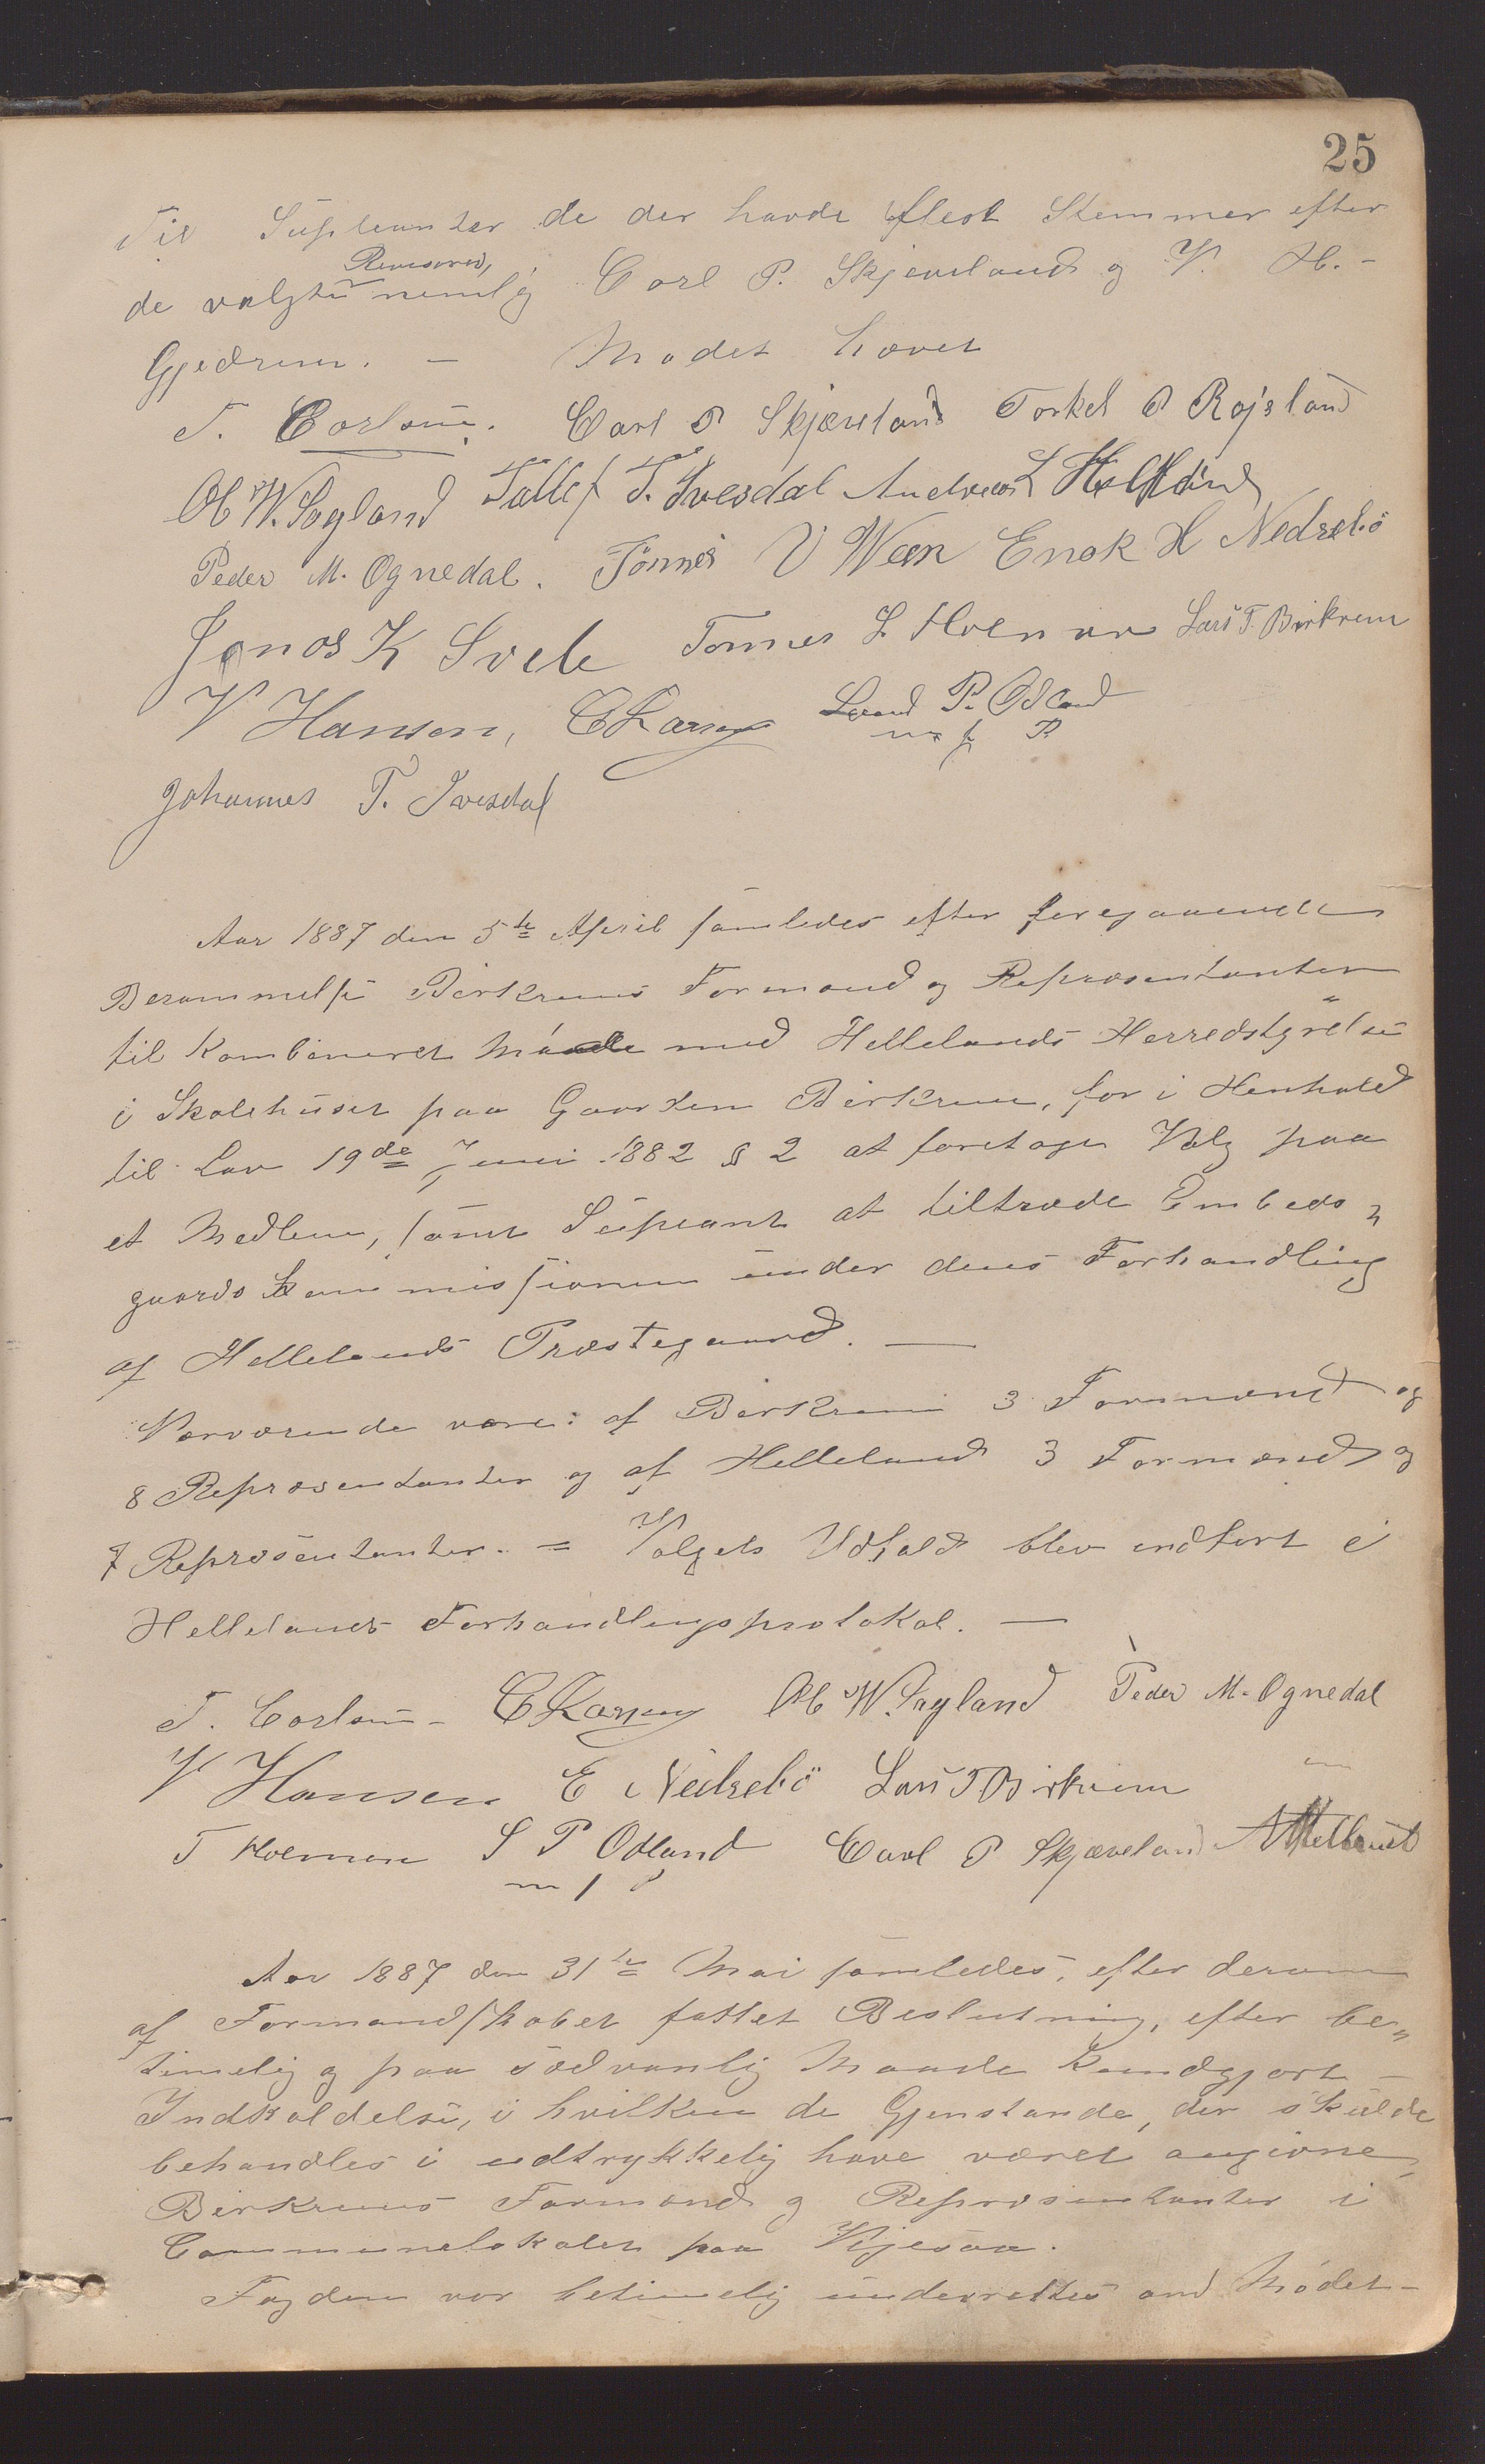 25
Til Supleanter de der havde flest Stemmer efter
de valgte Revisorer, nemlig Carl P. Skjæveland og V. H. -
Gjedrem. — Mødet hævet
T. Carlsen. Carl P Skjæveland Torkel P Røjsland
Ol W. Søyland Tollef T. Ivesdal Andreas L Helland
Peder M. Ognedal. Tönnes V Ween Enok H Nedrebö
Jonas K Svele Tönnes L Holmen Lars T. Birkrem
V Hansen, C Larsen Lavard P. Odland
m f P
Johannes T. Ivesdal
Aar 1887 den 5te April samledes efter foregaaende
Berammelse Birkrems Formænd og Repræsentanter
til Kombineret Møde med Hellelands Herredstyrelse
i Skolehuset paa Gaarden Birkrem, for i Henhold
til Lov 19de Juni 1882 § 2 at foretage Valg paa
et Medlem, samt Supleant at tiltræde Embeds„
gaards Kommissionen under dens Forhandling
af Hellelands Præstegaard. —
Nærværende vare: af Birkrem 3 Formænd og
8 Repræsentanter og af Helleland 3 Formænd og
7 Repræsentanter. = Valgets Udfald blev indført i
Hellelands Forhandlingsprotokol. —
T. Carlsen - C Larsen Ol W. Søyland Peder M. Ognedal
V Hansen E Nedrebö Lars T Birkrem
T Holmen L P Odland Carl P Skjæveland A Helland
m f P
Aar 1887 den 31te Mai samledes, efter derom
af Formandskabet fattet Beslutning, efter be„
timelig og paa sædvanlig Maade kundgjort -
Indkaldelse, i hvilken de Gjenstande, der skulde
behandles i udtrykkelig have været angivne,
Birkrems Formænd og Repræsentanter i
Communelokalet paa Vigesaa.
Fogden var betimelig underrettet om Mödet -